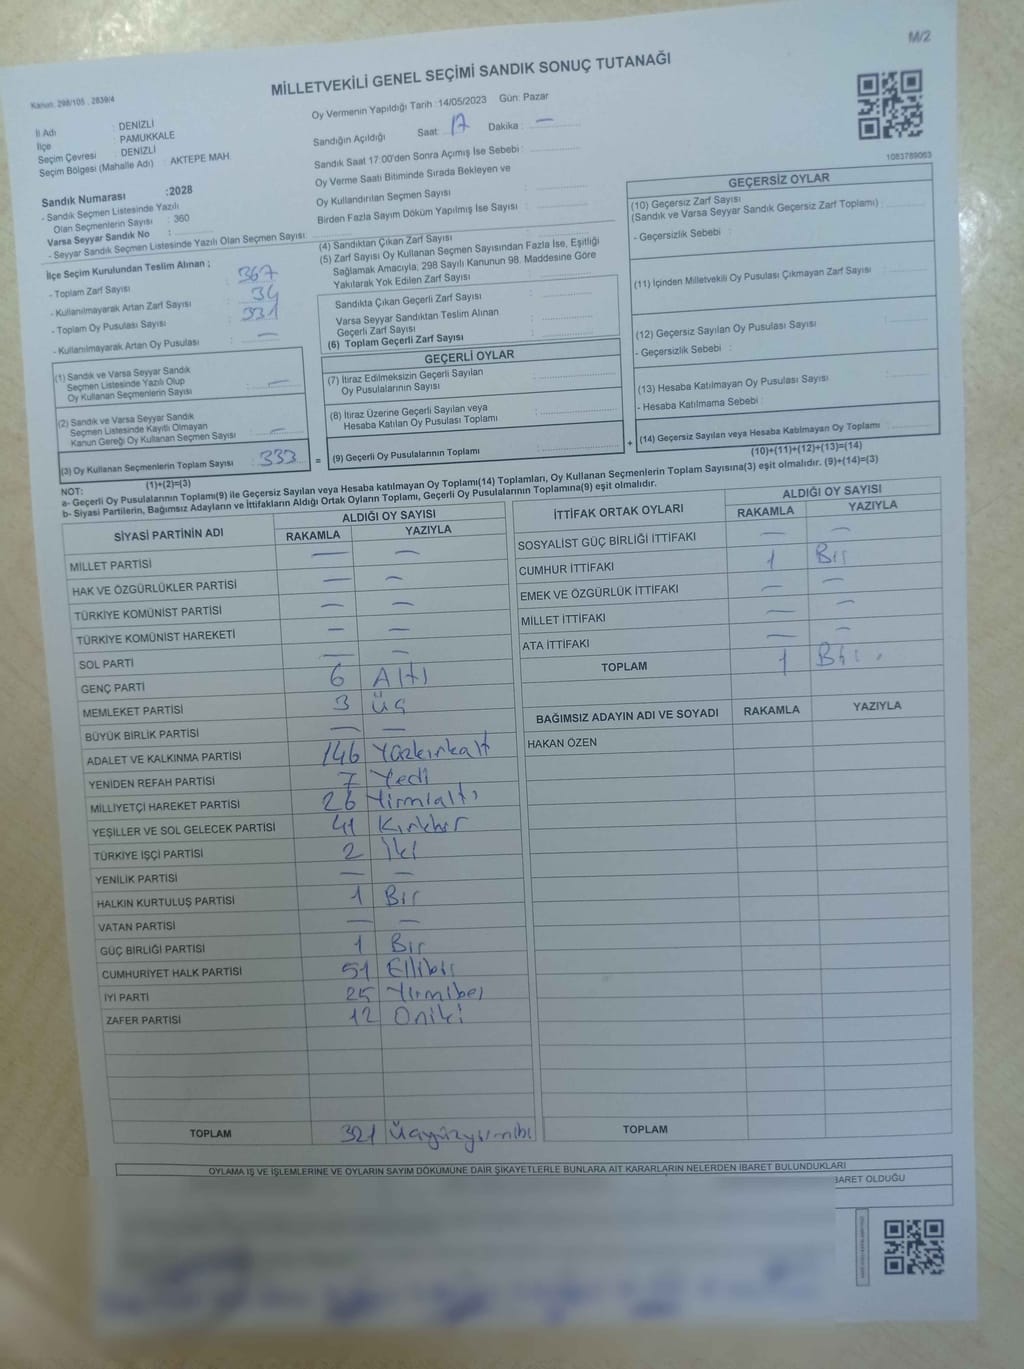 M/2
MİLLETVEKİLİ GENEL SEÇİMİ SANDIK SONUÇ TUTANAĞI
Kanun: 298/105 , 2839/4
İl Adı : DENİZLİ
İlçe : PAMUKKALE
Seçim Çevresi : DENİZLİ
Seçim Bölgesi (Mahalle Adı) : AKTEPE MAH.
Oy Vermenin Yapıldığı Tarih : 14/05/2023 Gün: Pazar
Sandığın Açıldığı Saat: 17 Dakika : —
Sandık Saat 17:00'den Sonra Açımış İse Sebebi :
Oy Verme Saati Bitiminde Sırada Bekleyen ve
Oy Kullandırılan Seçmen Sayısı :
Birden Fazla Sayım Döküm Yapılmış İse Sayısı :
1083789063
Sandık Numarası :2028
- Sandık Seçmen Listesinde Yazılı
Olan Seçmenlerin Sayısı : 360
Varsa Seyyar Sandık No :
- Seyyar Sandık Seçmen Listesinde Yazılı Olan Seçmen Sayısı :
İlçe Seçim Kurulundan Teslim Alınan ;
- Toplam Zarf Sayısı : 367
- Kullanılmayarak Artan Zarf Sayısı : 34
- Toplam Oy Pusulası Sayısı : 331
- Kullanılmayarak Artan Oy Pusulası : —
(1) Sandık ve Varsa Seyyar Sandık
Seçmen Listesinde Yazılı Olup
Oy Kullanan Seçmenlerin Sayısı : —
(2) Sandık ve Varsa Seyyar Sandık
Seçmen Listesinde Kayıtlı Olmayan
Kanun Gereği Oy Kullanan Seçmen Sayısı : —
(3) Oy Kullanan Seçmenlerin Toplam Sayısı : 333 =
(1)+(2)=(3)
(4) Sandıktan Çıkan Zarf Sayısı :
(5) Zarf Sayısı Oy Kullanan Seçmen Sayısından Fazla İse, Eşitliği
Sağlamak Amacıyla, 298 Sayılı Kanunun 98. Maddesine Göre
Yakılarak Yok Edilen Zarf Sayısı :
Sandıkta Çıkan Geçerli Zarf Sayısı :
Varsa Seyyar Sandıktan Teslim Alınan
Geçerli Zarf Sayısı :
(6) Toplam Geçerli Zarf Sayısı :
GEÇERLİ OYLAR
(7) İtiraz Edilmeksizin Geçerli Sayılan
Oy Pusulalarının Sayısı :
(8) İtiraz Üzerine Geçerli Sayılan veya
Hesaba Katılan Oy Pusulası Toplamı :
(9) Geçerli Oy Pusulalarının Toplamı : +
GEÇERSİZ OYLAR
(10) Geçersiz Zarf Sayısı
(Sandık ve Varsa Seyyar Sandık Geçersiz Zarf Toplamı) :
- Geçersizlik Sebebi :
(11) İçinden Milletvekili Oy Pusulası Çıkmayan Zarf Sayısı :
(12) Geçersiz Sayılan Oy Pusulası Sayısı :
- Geçersizlik Sebebi :
(13) Hesaba Katılmayan Oy Pusulası Sayısı :
- Hesaba Katılmama Sebebi :
(14) Geçersiz Sayılan veya Hesaba Katılmayan Oy Toplamı :
(10)+(11)+(12)+(13)=(14)
NOT:
a- Geçerli Oy Pusulalarının Toplamı(9) ile Geçersiz Sayılan veya Hesaba katılmayan Oy Toplamı(14) Toplamları, Oy Kullanan Seçmenlerin Toplam Sayısına(3) eşit olmalıdır. (9)+(14)=(3)
b- Siyasi Partilerin, Bağımsız Adayların ve İttifakların Aldığı Ortak Oyların Toplamı, Geçerli Oy Pusulalarının Toplamına(9) eşit olmalıdır.
SİYASİ PARTİNİN ADI
ALDIĞI OY SAYISI
RAKAMLA YAZIYLA
MİLLET PARTİSİ — —
HAK VE ÖZGÜRLÜKLER PARTİSİ — —
TÜRKİYE KOMÜNİST PARTİSİ — —
TÜRKİYE KOMÜNİST HAREKETİ — —
SOL PARTİ — —
GENÇ PARTİ 6 Altı
MEMLEKET PARTİSİ 3 Üç
BÜYÜK BİRLİK PARTİSİ — —
ADALET VE KALKINMA PARTİSİ 146 Yüzkırkalt
YENİDEN REFAH PARTİSİ 7 Yedi
MİLLİYETÇİ HAREKET PARTİSİ 26 Yirmialtı
YEŞİLLER VE SOL GELECEK PARTİSİ 41 Kırkbir
TÜRKİYE İŞÇİ PARTİSİ 2 İki
YENİLİK PARTİSİ — —
HALKIN KURTULUŞ PARTİSİ 1 Bir
VATAN PARTİSİ — —
GÜÇ BİRLİĞİ PARTİSİ 1 Bir
CUMHURİYET HALK PARTİSİ 51 Ellibir
İYİ PARTİ 25 Yirmibeş
ZAFER PARTİSİ 12 Oniki
TOPLAM 321 Üçyüzyirmibi
İTTİFAK ORTAK OYLARI
ALDIĞI OY SAYISI
RAKAMLA YAZIYLA
SOSYALİST GÜÇ BİRLİĞİ İTTİFAKI — —
CUMHUR İTTİFAKI 1 Bir
EMEK VE ÖZGÜRLÜK İTTİFAKI — —
MİLLET İTTİFAKI — —
ATA İTTİFAKI — —
TOPLAM 1 Bir
BAĞIMSIZ ADAYIN ADI VE SOYADI RAKAMLA YAZIYLA
HAKAN ÖZEN
TOPLAM
OYLAMA İŞ VE İŞLEMLERİNE VE OYLARIN SAYIM DÖKÜMÜNE DAİR ŞİKAYETLERLE BUNLARA AİT KARARLARIN NELERDEN İBARET BULUNDUKLARI
BARET OLDUĞU